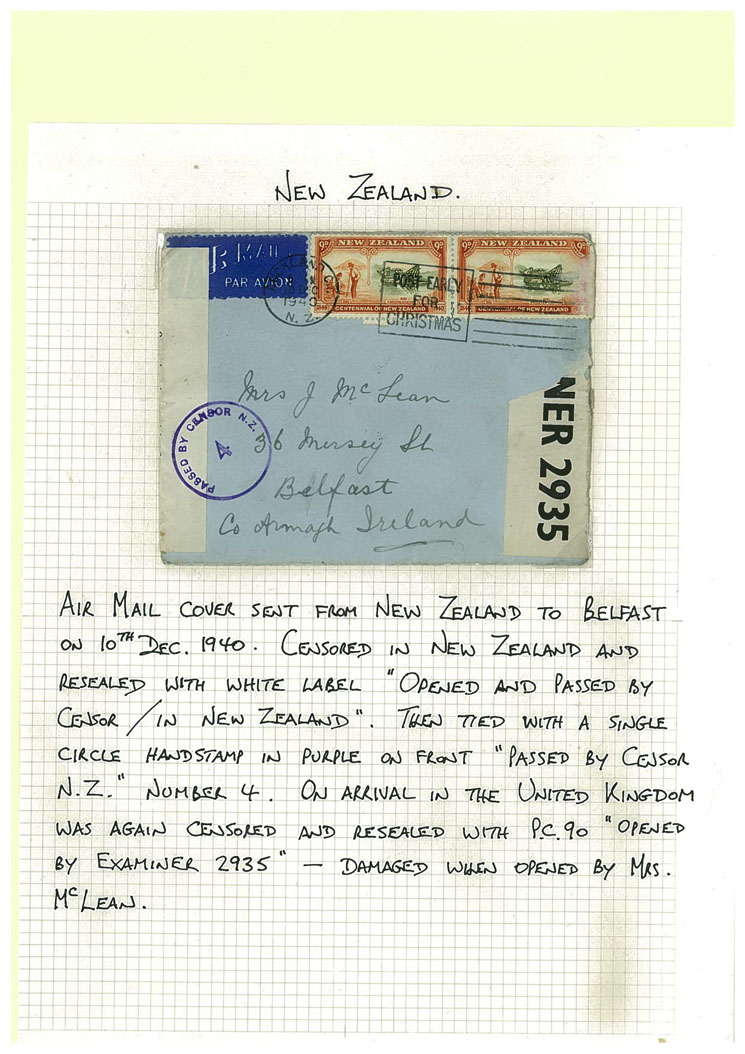 NEW ZEALAND.
MAIL
PAR AVION
9D NEW ZEALAND 9D
CENTENNIAL OF NEW ZEALAND
9D NEW ZEALAND 9D
CENTENNIAL OF NEW ZEALAND
AUCKLAND
1940
N. Z.
POST EARLY
FOR
CHRISTMAS
Mrs J McLean
36 Mersey St
Belfast
Co Armagh Ireland
PASSED BY CENSOR N.Z.
4
NER 2935
AIR MAIL COVER SENT FROM NEW ZEALAND TO BELFAST
ON 10TH DEC. 1940. CENSORED IN NEW ZEALAND AND
RESEALED WITH WHITE LABEL "OPENED AND PASSED BY
CENSOR / IN NEW ZEALAND". THEN TIED WITH A SINGLE
CIRCLE HANDSTAMP IN PURPLE ON FRONT "PASSED BY CENSOR
N.Z." NUMBER 4. ON ARRIVAL IN THE UNITED KINGDOM
WAS AGAIN CENSORED AND RESEALED WITH P.C. 90 "OPENED
BY EXAMINER 2935" — DAMAGED WHEN OPENED BY MRS.
McLEAN.